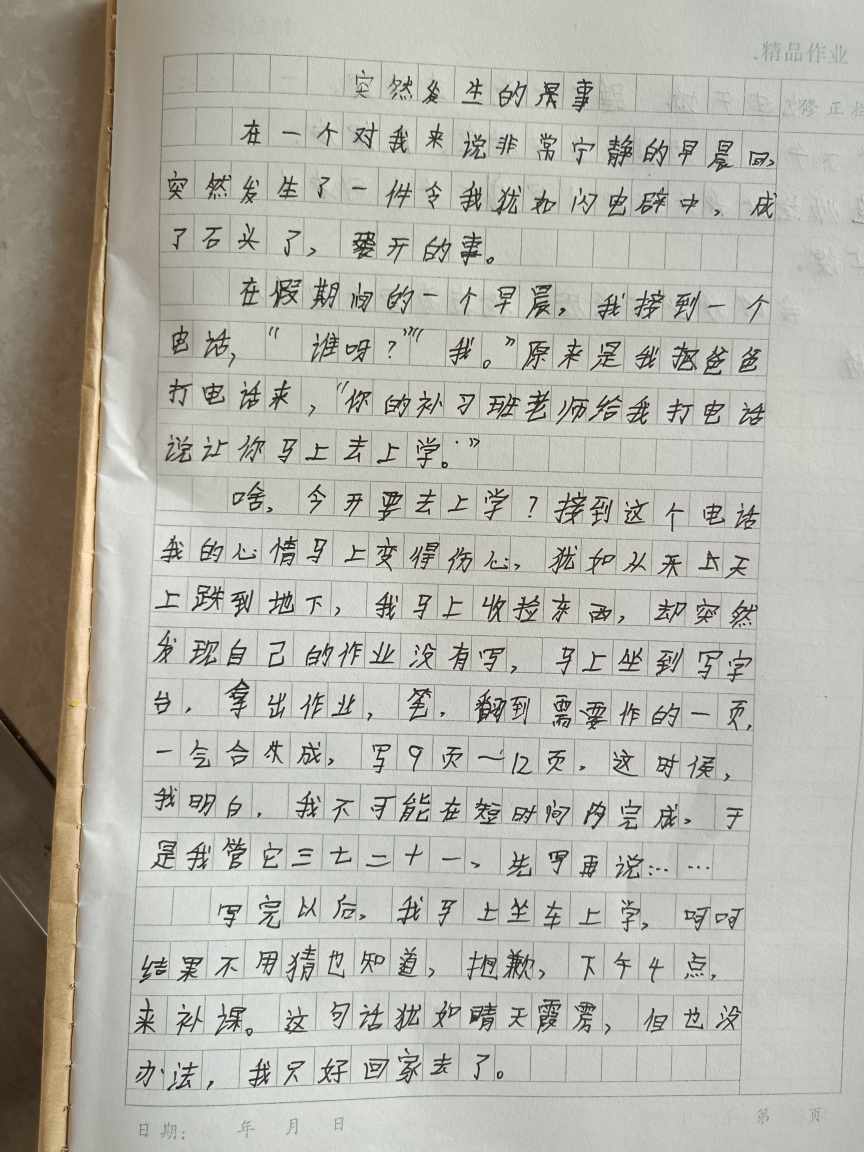 精品作业
修正栏
突然发生的果事
在一个对我来说非常宁静的早晨回,
突然发生了一件令我犹如闪电辟中,成
了石头了,要开的事。
在假期间的一个早晨,我接到一个
电话,“谁呀?”“我。”原来是我把爸爸
打电话来,“你的补习班老师给我打电话
说让你马上去上学。”
啥,今开要去上学?接到这个电话
我的心情马上变得伤心,犹如从天上天
上跌到地下,我马上收捡东西,却突然
发现自己的作业没有写,马上坐到写字
台,拿出作业,笔,翻到需要作的一页,
一气合失成,写9页一12页,这时侯,
我明白,我不可能在短时间内完成,于
是我管它三七二十一,先写再说……
写完以后,我马上坐车上学,呵呵
结果不用猜也知道,抱歉,下午4点,
来补课。这句话犹如晴天霞雳,但也没
办法,我只好回家去了。
日期: 年 月 日
第 页